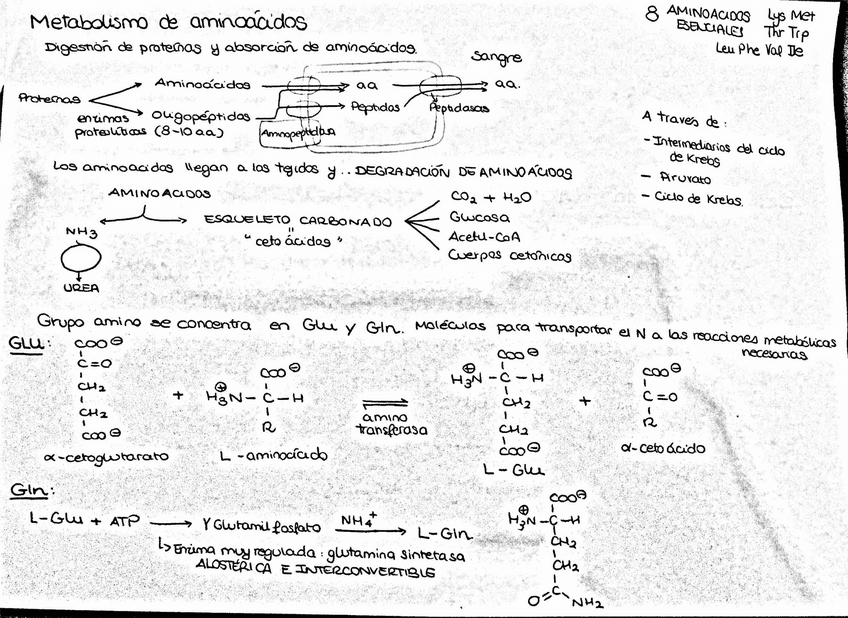 Metabolismo de aminoácidos
8 AMINOACIDOS ESENCIALES
Lys Met
Thr Trp
Leu Phe Val Ile
Digestión de proteínas y absorción de aminoácidos.
Sangre
Proteínas
Aminoácidos
aa
aa.
enzimas proteolíticas
Oligopéptidos (8-10 aa)
Aminopeptidasa
Peptidos
Peptidasas
A través de:
- Intermediarios del ciclo de Krebs
- Piruvato
- Ciclo de Krebs.
Los aminoacidos llegan a los tejidos y.. DEGRADACIÓN DE AMINOÁCIDOS
AMINOACIDOS
NH3
UREA
ESQUELETO CARBONADO
"
"cetoácidos"
CO2 + H2O
Glucosa
Acetil-CoA
Cuerpos cetónicos
Grupo amino se concentra en Glu y Gln. Moléculas para transportar el N a las reacciones metabólicas necesarias
GLU:
COO⊖
C=O
CH2
CH2
COO⊖
α-cetoglutarato
+
COO⊖
H3⊕N-C-H
R
L-aminoácido
amino transferasa
COO⊖
H3⊕N-C-H
CH2
CH2
COO⊖
L-Glu
+
COO⊖
C=O
R
α-cetoácido
Gln:
L-Glu + ATP → γ Glutamil fosfato NH4+ → L-Gln
↳ Enzima muy regulada: glutamina sintetasa
ALOSTÉRICA E INTERCONVERTIBLE
COO⊖
H3⊕N-C-H
CH2
CH2
C
O= NH2